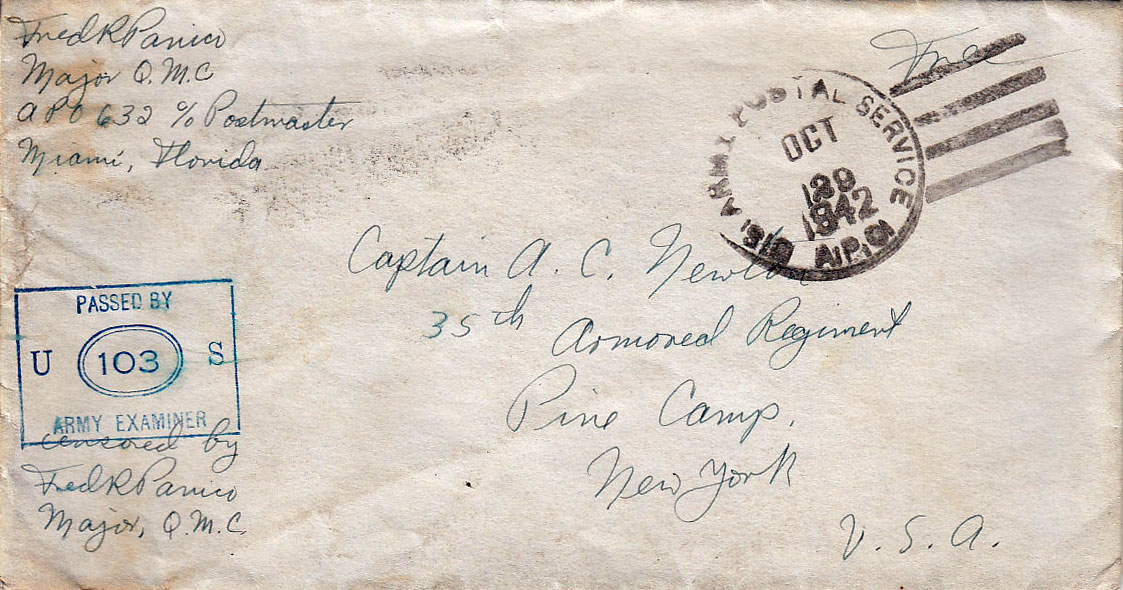 Fred R Panico
Major Q.M.C
APO 632 c/o Postmaster
Miami, Florida
Free
U.S. ARMY POSTAL SERVICE
OCT
29
1942
A.P.O.
Captain A. C. Newton
35th Armored Regiment
Pine Camp,
New York
U. S. A.
PASSED BY
U 103 S
ARMY EXAMINER
censored by
Fred R Panico
Major, Q.M.C.